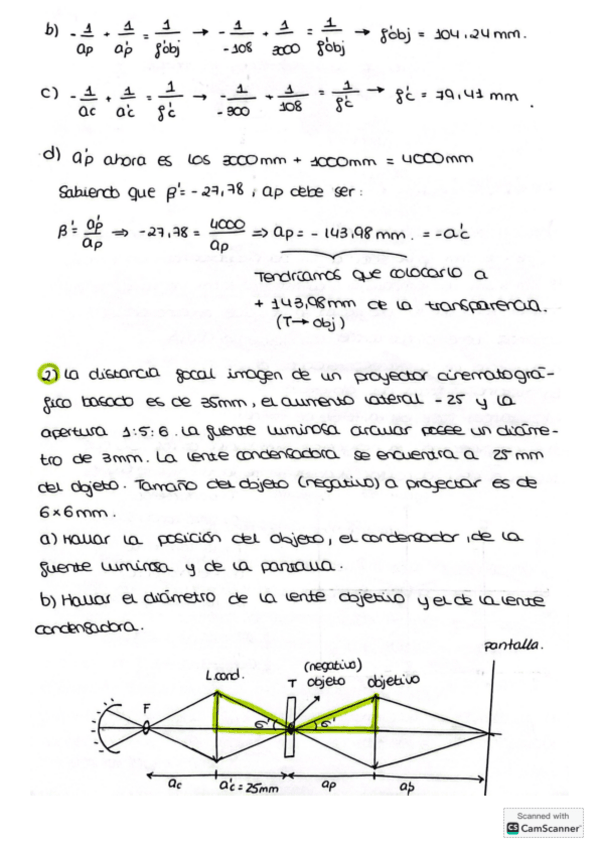 b) -1/ap + 1/a'p = 1/f'obj → -1/-108 + 1/3000 = 1/f'obj → f'obj = 104,24 mm.
c) -1/ac + 1/a'c = 1/f'c → -1/-300 + 1/108 = 1/f'c → f'c = 79,41 mm.
d) a'p ahora es los 3000mm + 1000mm = 4000mm
Sabiendo que β' = -27,78, ap debe ser:
β' = a'p/ap ⇒ -27,78 = 4000/ap ⇒ ap = -143,98 mm. = -a'c
Tendríamos que colocarlo a
+ 143,98mm de la transparencia.
(T → obj)
2) La distancia focal imagen de un proyector cinematográ-
fico basado es de 35mm, el aumento lateral -25 y la
apertura 1:5:6. La fuente luminosa circular posee un diáme-
tro de 3mm. La lente condensadora se encuentra a 25mm
del objeto. Tamaño del objeto (negativo) a proyectar es de
6x6mm.
a) Hallar la posición del objeto, el condensador, de la
fuente luminosa y de la pantalla.
b) Hallar el diámetro de la lente objetivo y el de la lente
condensadora.
pantalla.
L cond.
(negativo)
T objeto
objetivo
F
σ'
σ'
ac
a'c = 25mm
ap
a'p
Scanned with
CS CamScanner